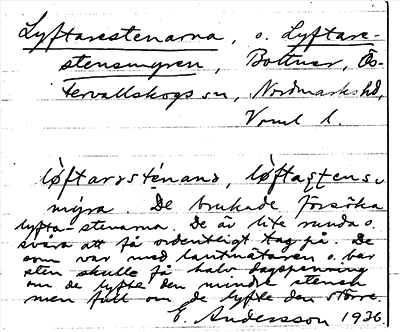 Lyftarestenarna, o. Lyftare-
stensmyren, Bollnur, Ös-
tervallskogs sn, Nordmarks hd,
Vrml l.
lø̀ftarsstenanà, lø̀ftaʂtens-
mýra. De brukade försöka
lyfta stenarna. De är lite runda o.
svåra att få ordentligt tag på. De
som var med lantmätaren o. bar
sten skulle få halv dagspenning
om de lyfte den mindre stenen
men full om de lyfte den större.
E. Andersson 1936